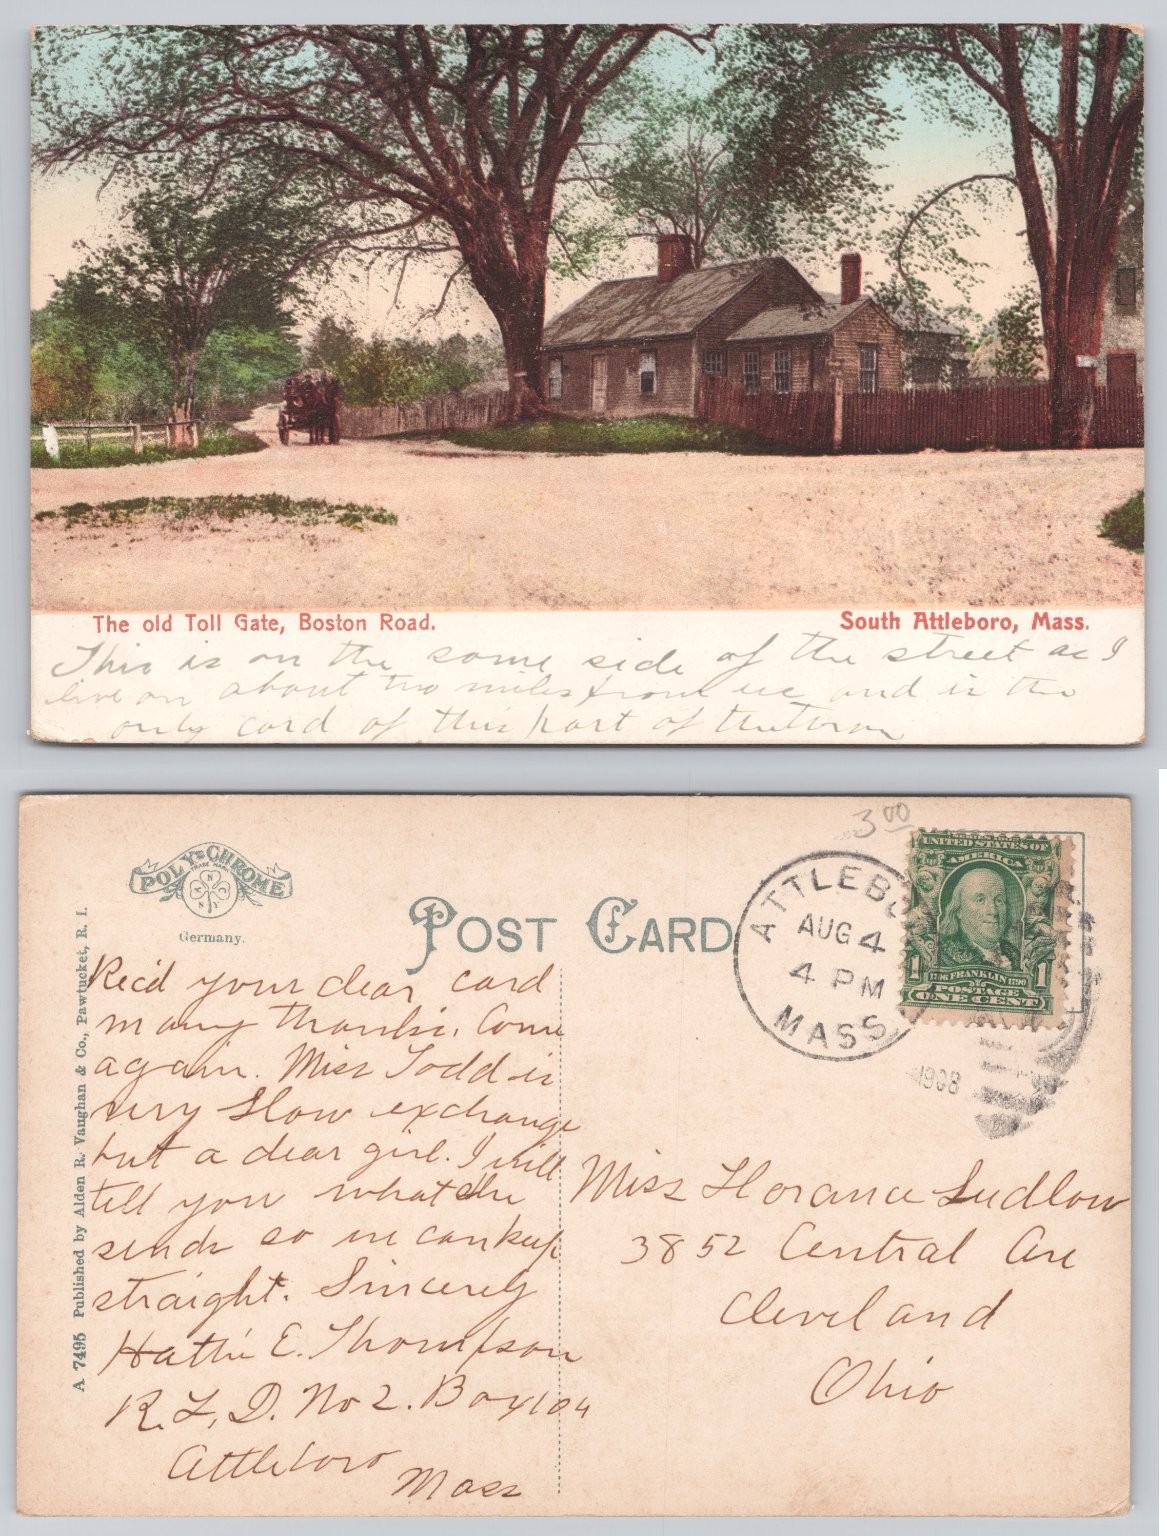 The old Toll Gate, Boston Road.
South Attleboro, Mass.
This is on the same side of the street as I
live on about two miles from us and is the
only card of this part of the town
3 00
POLY-CHROME
TRADE MARK
Germany.
POST CARD
ATTLEBO
AUG 4
4 PM
MASS
1908
UNITED STATES OF
AMERICA
1706 FRANKLIN 1790
POSTAGE
1 ONE CENT 1
A 7495 Published by Alden R. Vaughan & Co., Pawtucket, R. I.
Rec'd your dear card
many thanks. Come
again. Miss Todd is
very slow exchange
but a dear girl. I will
tell you what she
sends so we can keep
straight. Sincerely
Hattie E. Thompson
R. F. D. No 2. Box 104
Attleboro
Mass
Miss Florance Ludlow
3852 Central Ave
Cleveland
Ohio